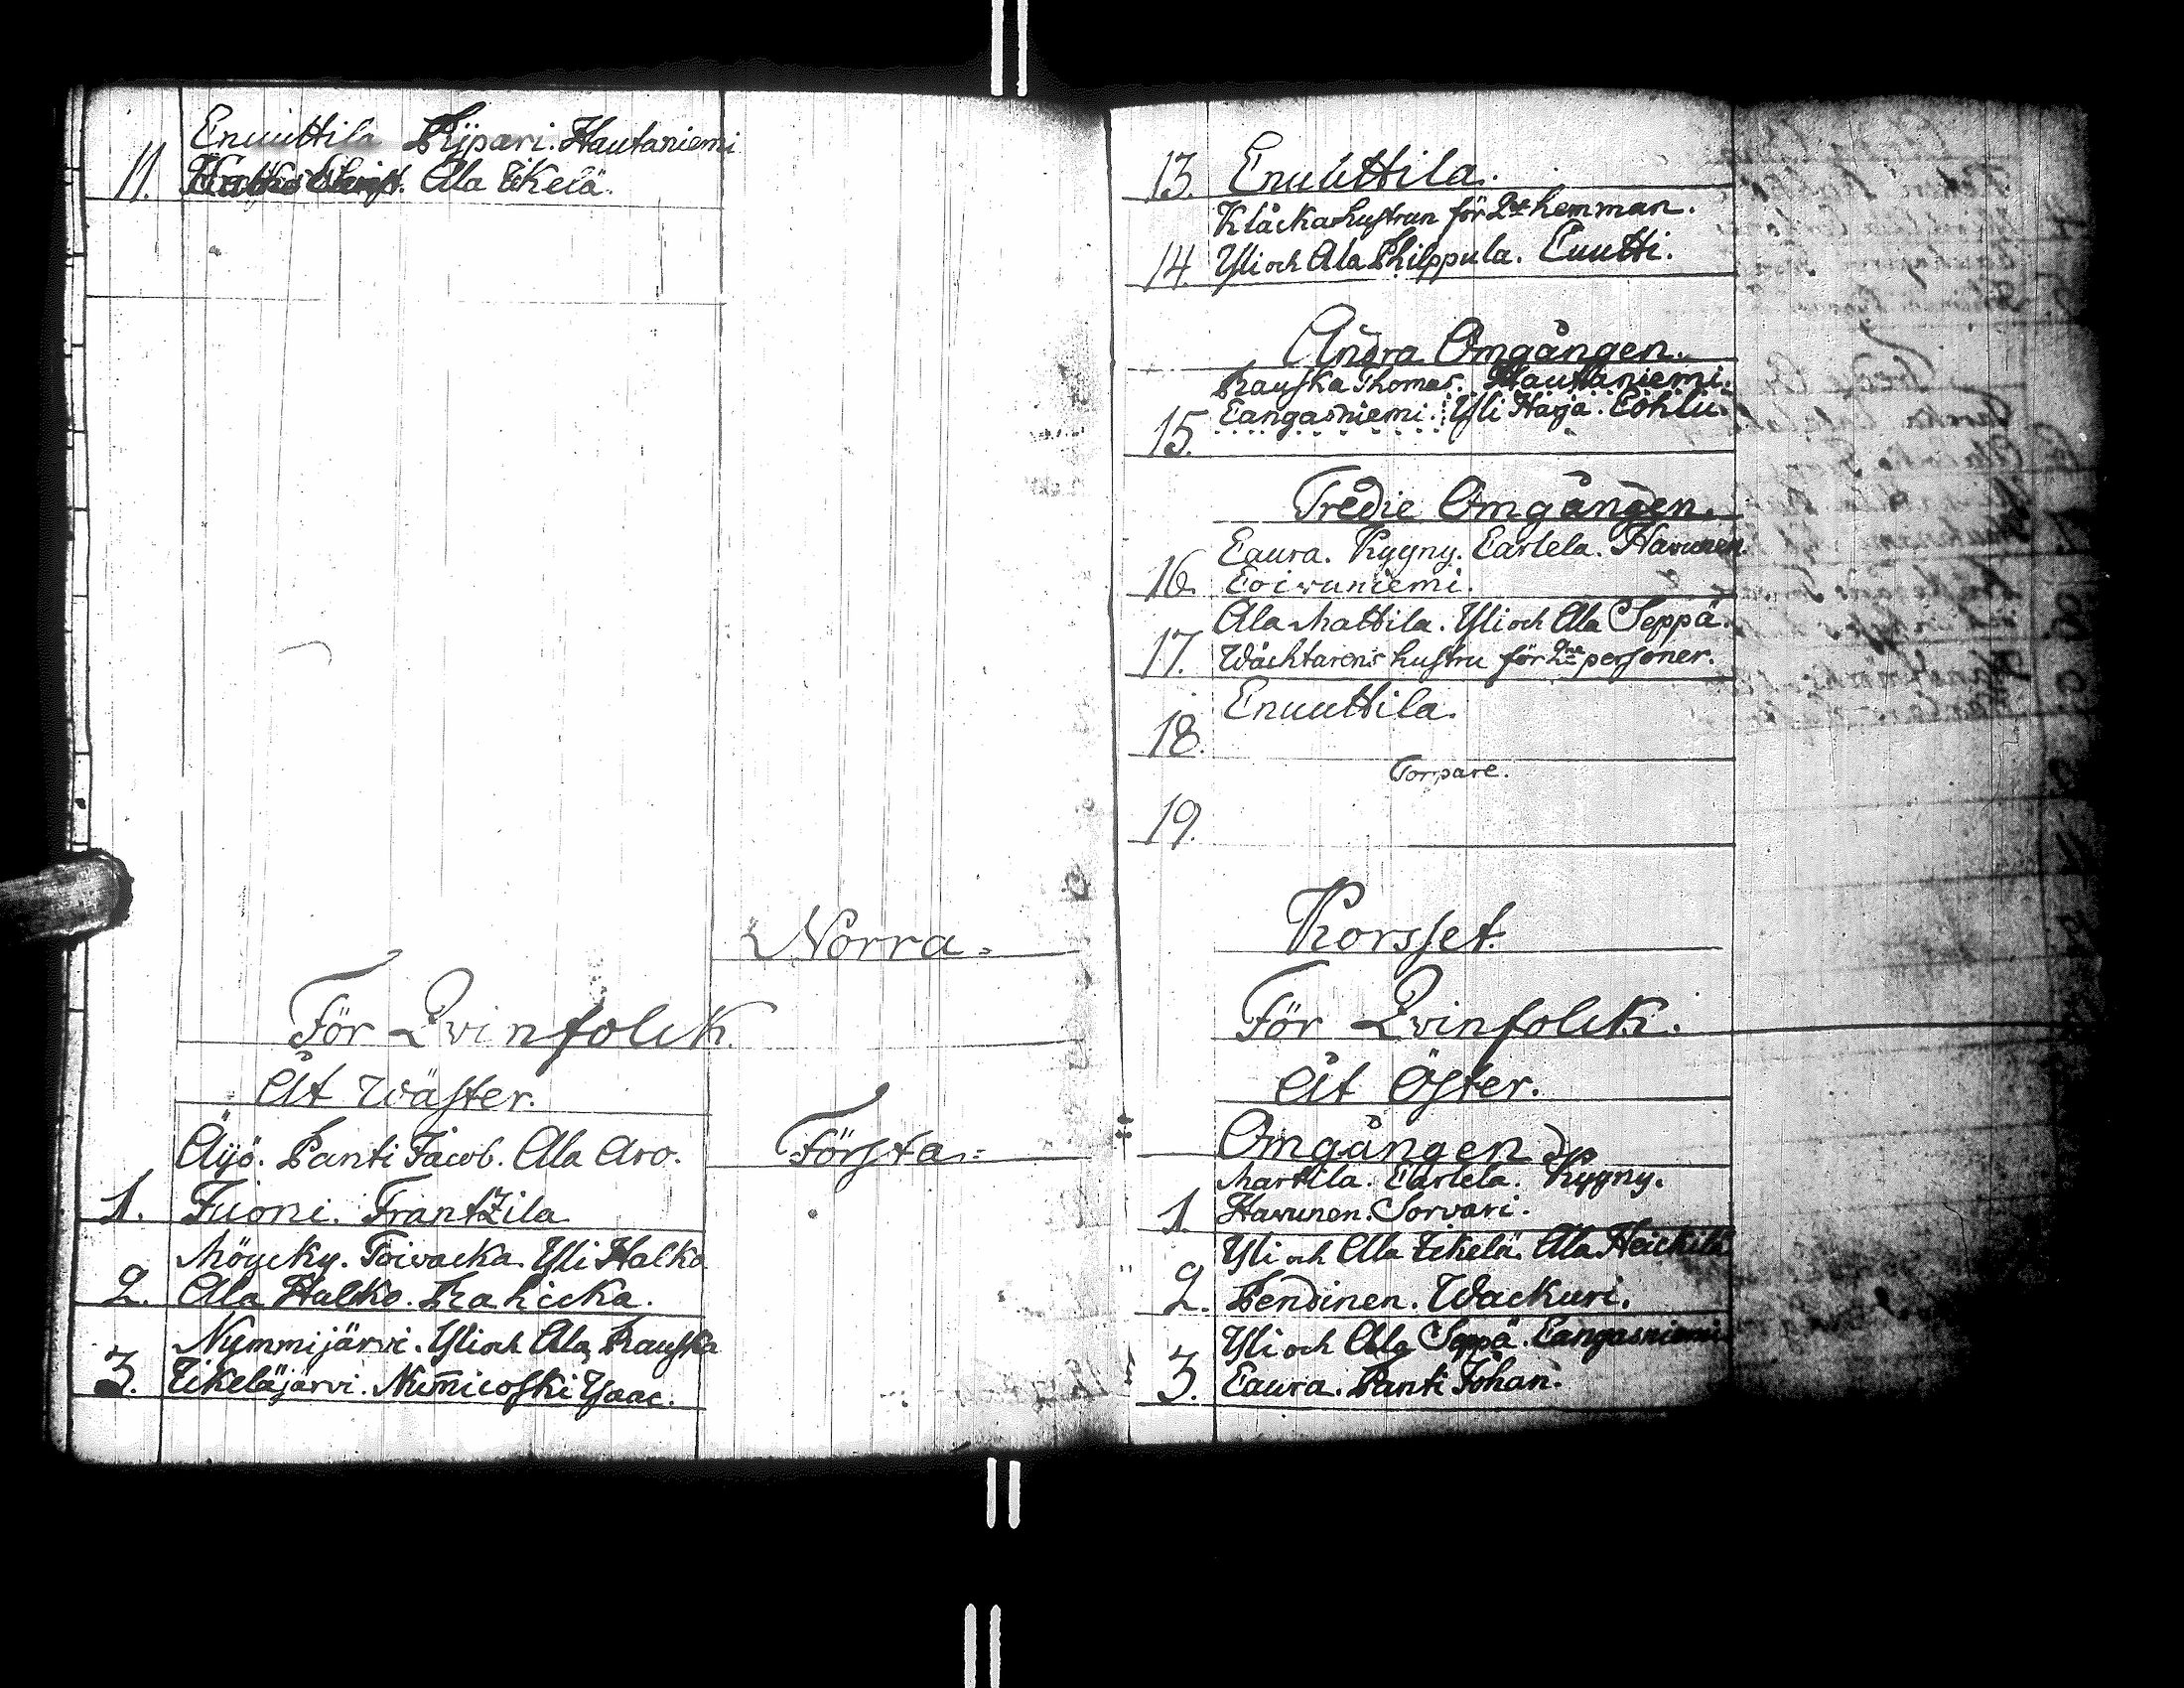 Enuuttila Pijpari. Hautaniemi
11. Ala Eikelä.
Norra=
För Qvinfolck.
Åt Wäster.
Första=
Äijö. Panti Jacob. Ala Aro.
1. Juoni. Frantzila
Möycky. Toivacka. Yli Halko
2. Ala Halko. Rahicka.
Nymmijärvi. Yli och Ala Rauska
3. Eikeläjärvi. Num̄icoski Ysaac.
13. Enuuttila.
Klåckarhustrun för 2ne hemman.
14. Yli och Ala Philppula. Luutti.
Andra Omgången.
Rauska Thomas. Hautaniemi.
15. Langasniemi. Yli Häijä. Löhlu.
Tredie Omgången.
Laura. Kyyny. Lartela. Havunen
16. Loivuniemi.
Ala Mattila. Yli och Ala Seppä.
17. Wäcktarens hustru för 2ne personer.
18. Enuuttila.
Torpare.
19.
Korsset.
För Qvinfolck.
Åt Öster.
Omgången
Marttila. Lartela. Kyyny.
1 Havunen. Sorvari.
Yli och Ala Eikelä. Ala Heickilä
2. Pendinen. Wackuri.
Yli och Ala Seppä. Langasniemi
3. Laura. Panti Johan.